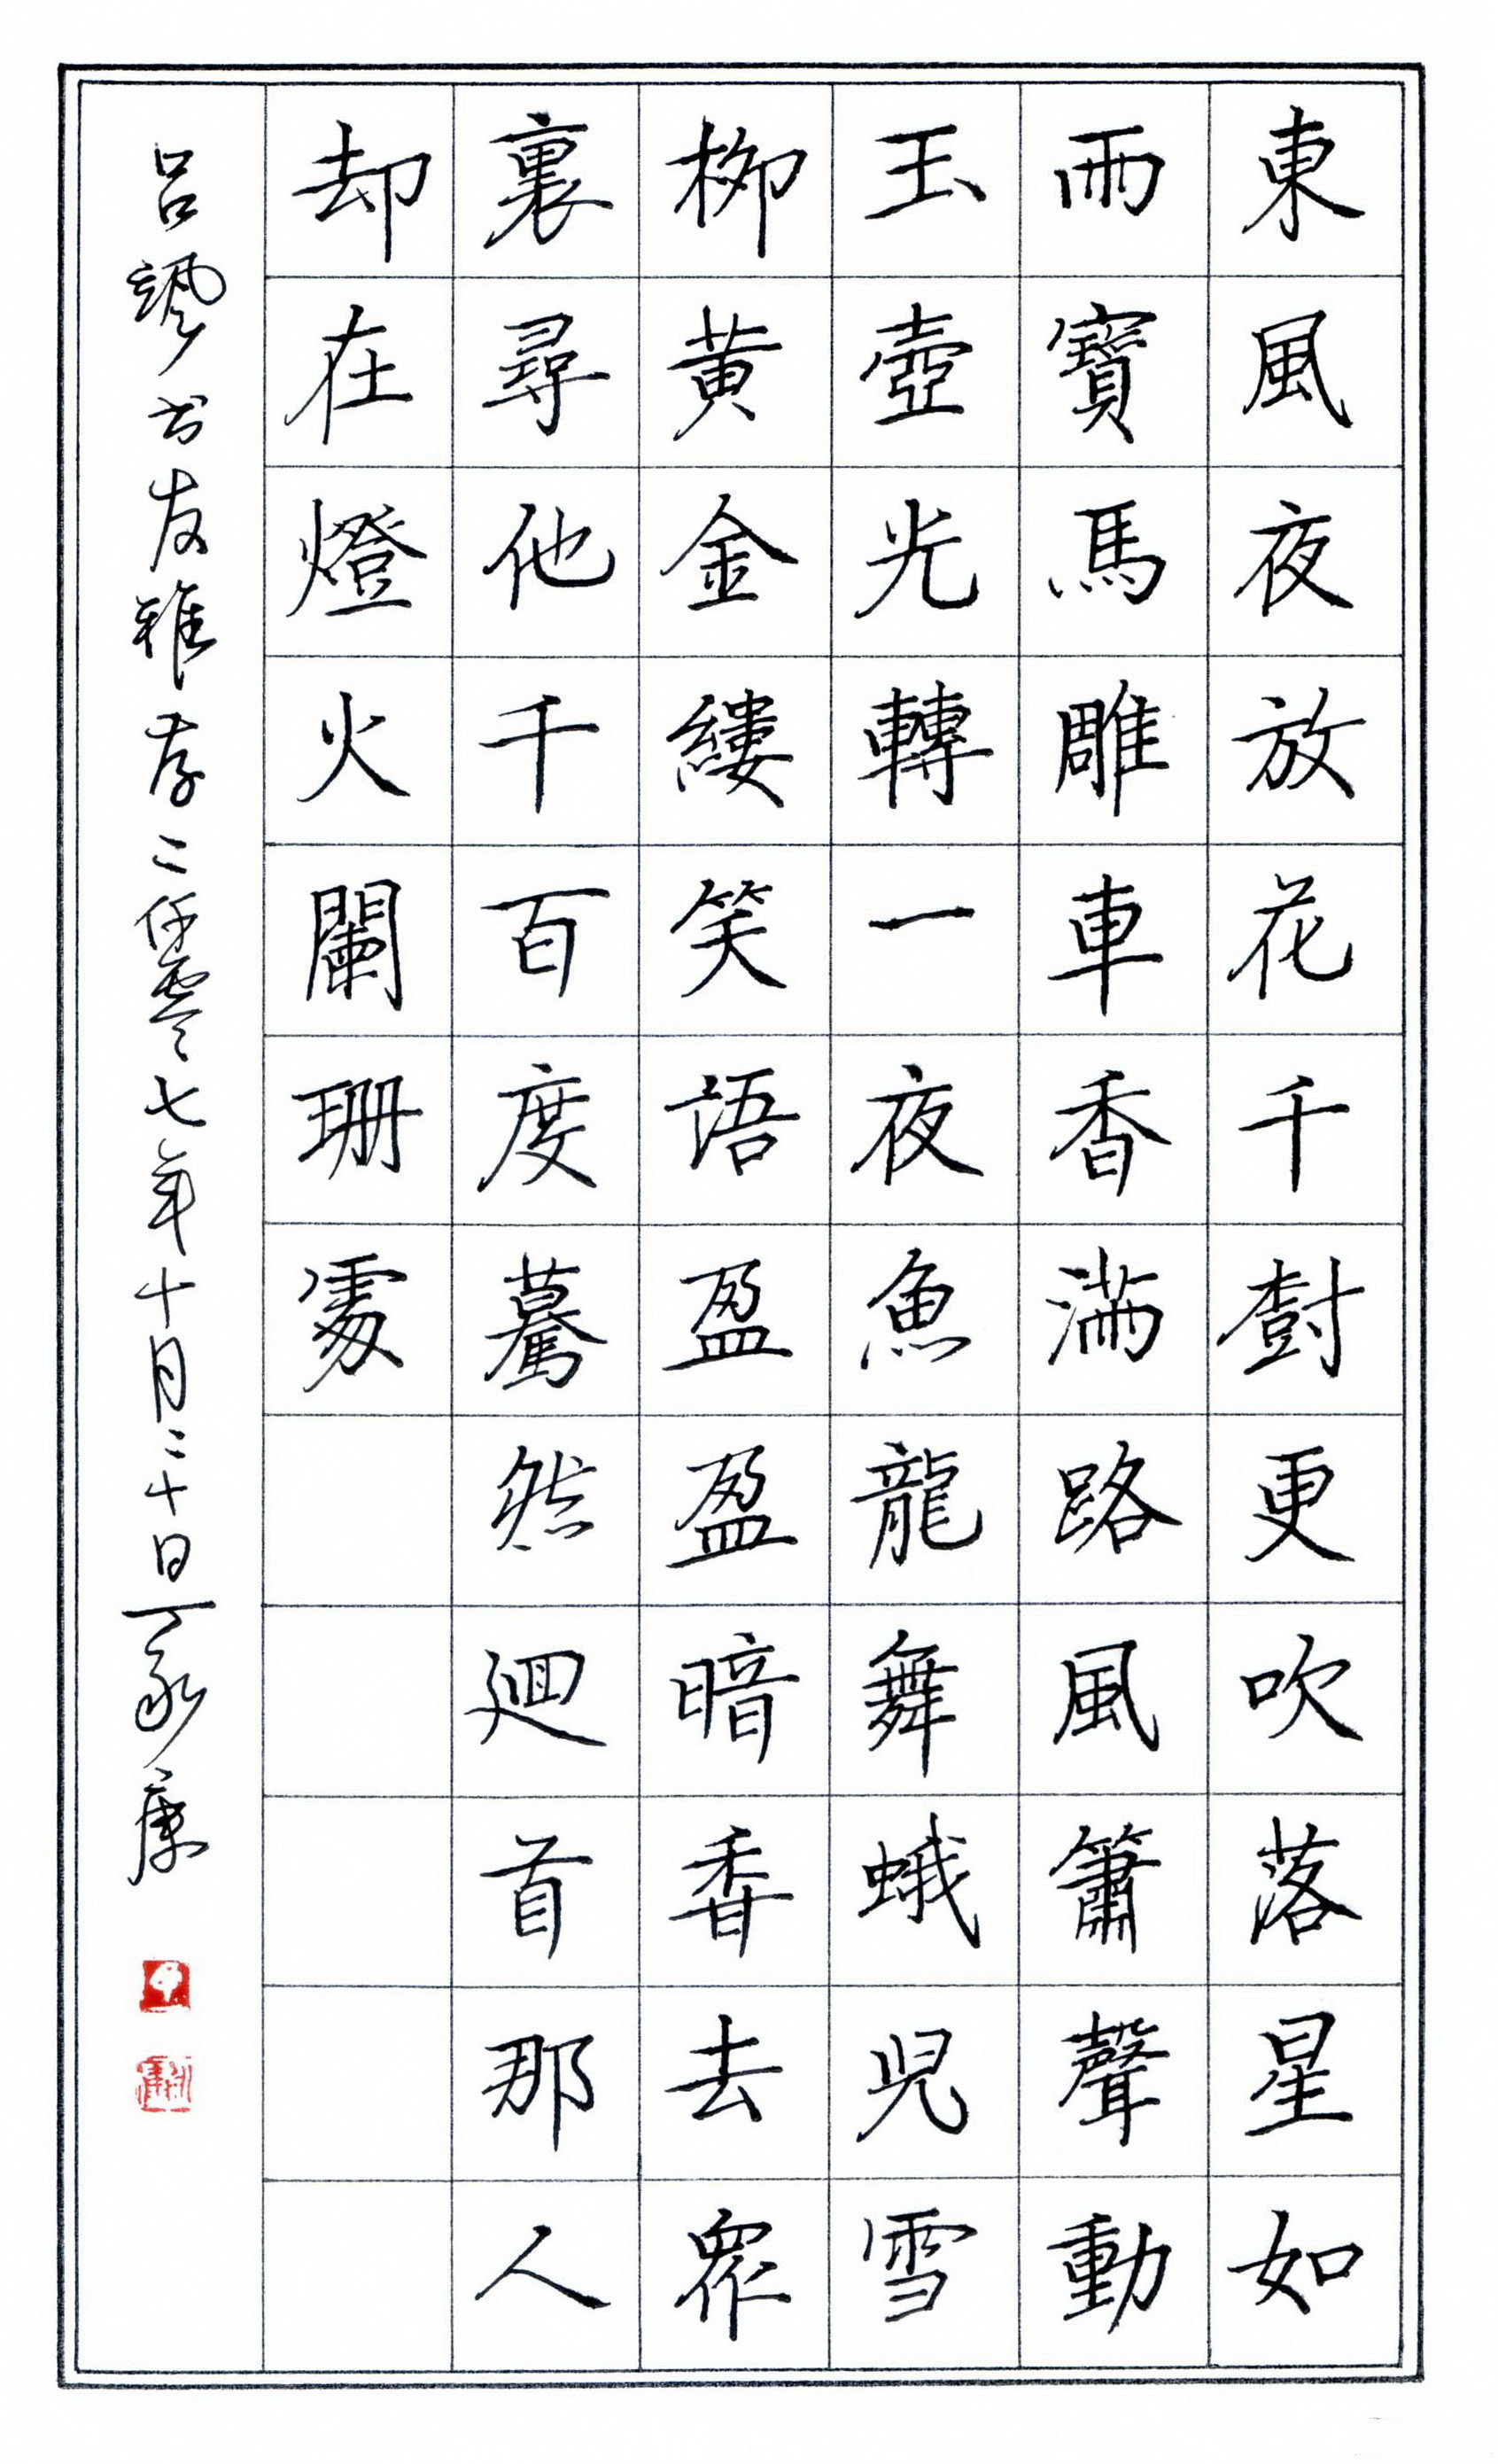 東風夜放花千樹更吹落星如
雨寶馬雕車香滿路風簫聲動
玉壺光轉一夜魚龍舞蛾兒雪
柳黃金縷笑語盈盈暗香去眾
裏尋他千百度驀然迴首那人
却在燈火闌珊處
吕书友雅存二仟零七年十月二十日丁永康